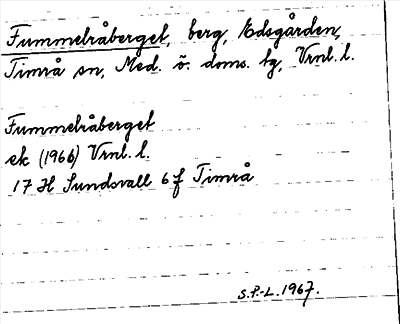 Fummelråberget, berg, Edsgården,
Timrå sn, Med. ö. doms. tg, Vrnl. l.
Fummelråberget
ek (1966) Vrnl. l.
17 H Sundsvall 6 f Timrå
S.P.-L. 1967.